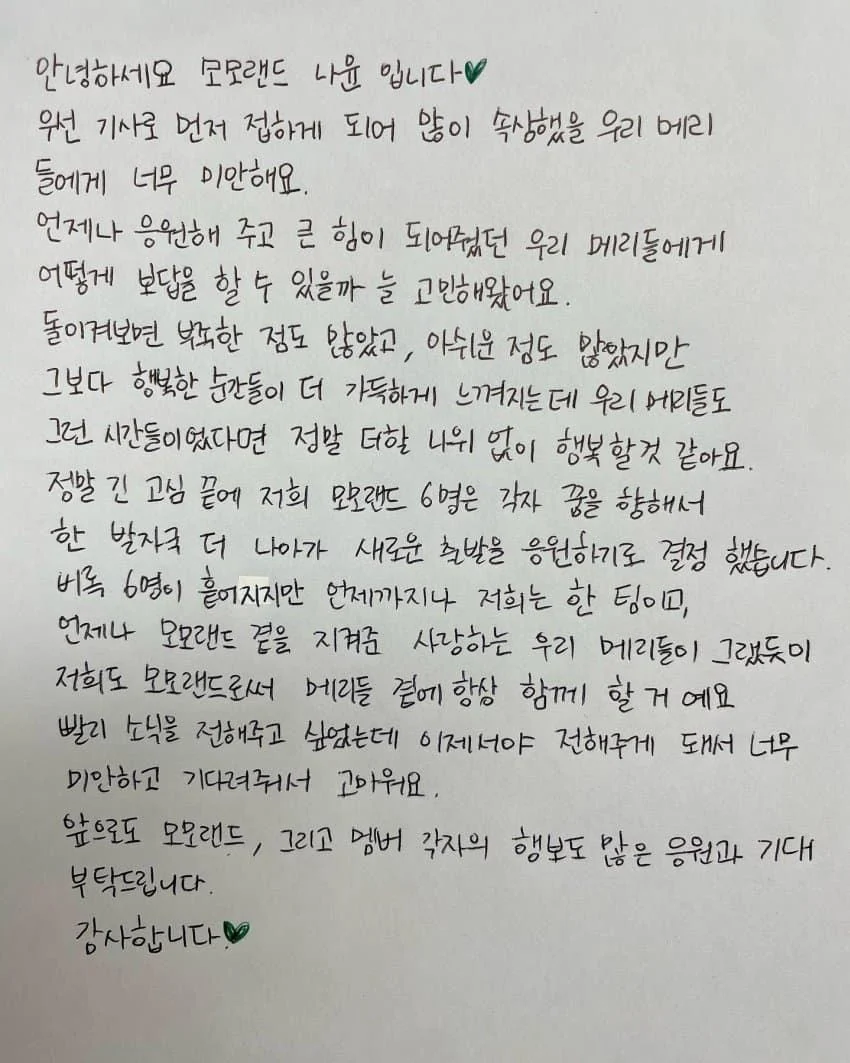 안녕하세요 모모랜드 나윤 입니다💚
우선 기사로 먼저 접하게 되어 많이 속상했을 우리 메리
들에게 너무 미안해요.
언제나 응원해 주고 큰 힘이 되어줬던 우리 메리들에게
어떻게 보답을 할 수 있을까 늘 고민해왔어요.
돌이켜보면 부족한 점도 많았고, 아쉬운 점도 많았지만
그보다 행복한 순간들이 더 가득하게 느껴지는데 우리 메리들도
그런 시간들이었다면 정말 더할 나위 없이 행복할것 같아요.
정말 긴 고심 끝에 저희 모모랜드 6명은 각자 꿈을 향해서
한 발자국 더 나아가 새로운 출발을 응원하기로 결정 했습니다.
비록 6명이 흩어지지만 언제까지나 저희는 한 팀이고,
언제나 모모랜드 곁을 지켜준 사랑하는 우리 메리들이 그랬듯이
저희도 모모랜드로써 메리들 곁에 항상 함께 할 거 예요
빨리 소식을 전해주고 싶었는데 이제서야 전해주게 돼서 너무
미안하고 기다려줘서 고마워요.
앞으로도 모모랜드, 그리고 멤버 각자의 행보도 많은 응원과 기대
부탁드립니다.
감사합니다.💚